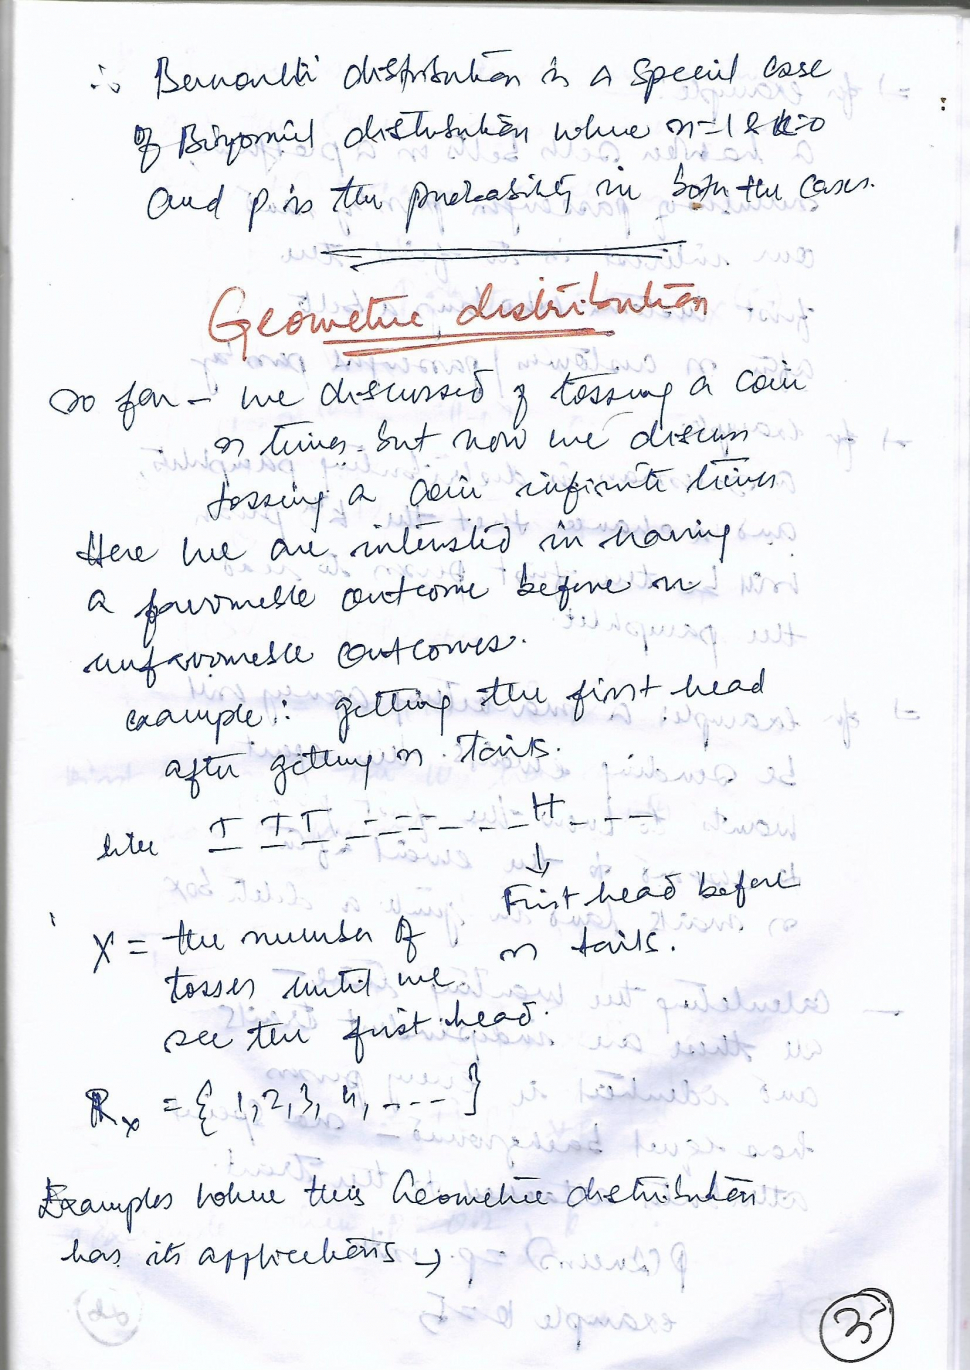 ∴ Bernoulli distribution is a special case
of Binomial distribution where n=1 & k=0
and p is the probability in both the cases.
Geometric distribution
So far – we discussed of tossing a coin
n times. but now we discuss
tossing a coin infinite times
Here we are interested in having
a favourable outcome before n
unfavourable outcomes.
example: getting the first head
after getting n tails.
like T T T _ _ _ _ _ _ H _ _ _
↓
First head before
n tails.
X = the number of
tosses until we
see the first head.
Rx = {1, 2, 3, 4, ---- }
Examples where this Geometric distribution
has its applications →
3